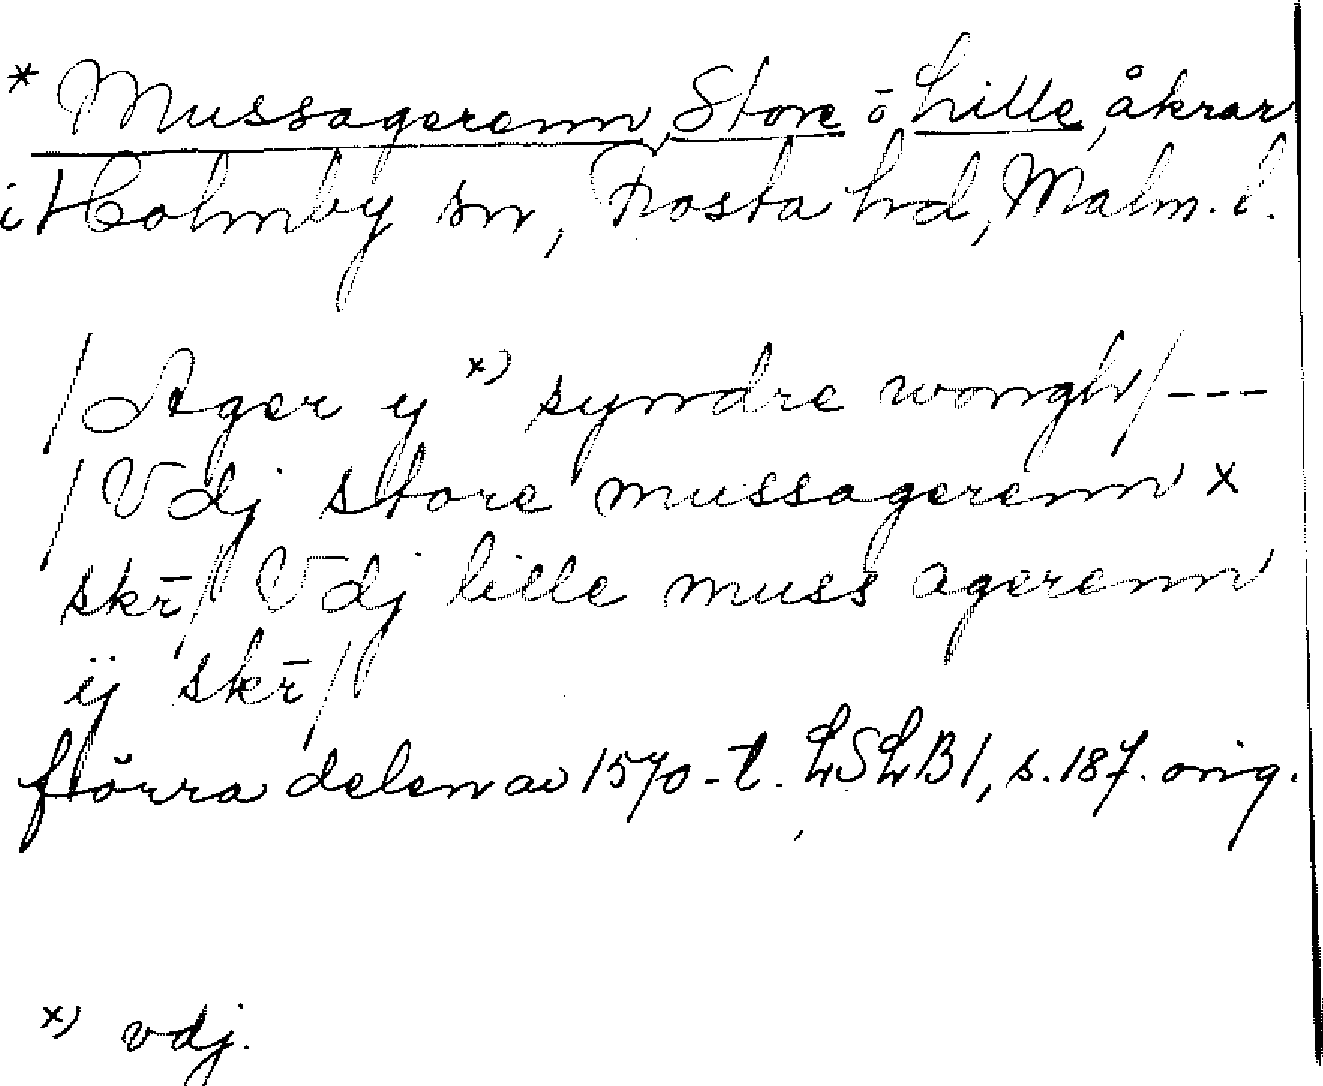 * Mussagerenn, Store o Lille, åkrar
i Holmby sn, Frosta hd, Malm. l.
/Ager y x) syndre wongh/---
/Vdj store mussagerenn x
skr̄/ Vdj lille muss agerenn
ij skr̄/
förra delen av 1570-t. LSLB1, s. 187. orig.
x) vdj.